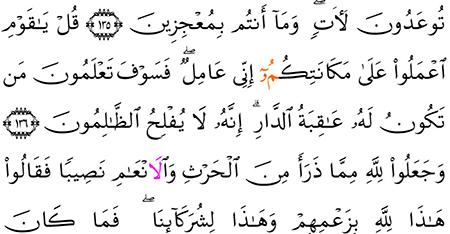 تُوعَدُونَ لَأٓتٖۖ وَمَآ أَنتُم بِمُعۡجِزِينَ ۝١٣٥ قُلۡ يَٰقَوۡمِ
ٱعۡمَلُواْ عَلَىٰ مَكَانَتِكُمُۥٓ إِنِّي عَامِلٞۖ فَسَوۡفَ تَعۡلَمُونَ مَن
تَكُونُ لَهُۥ عَٰقِبَةُ ٱلدَّارِۚ إِنَّهُۥ لَا يُفۡلِحُ ٱلظَّٰلِمُونَ ۝١٣٦
وَجَعَلُواْ لِلَّهِ مِمَّا ذَرَأَ مِنَ ٱلۡحَرۡثِ وَٱلَانۡعَٰمِ نَصِيبٗا فَقَالُواْ
هَٰذَا لِلَّهِ بِزَعۡمِهِمۡ وَهَٰذَا لِشُرَكَآئِنَاۖ فَمَا كَانَ